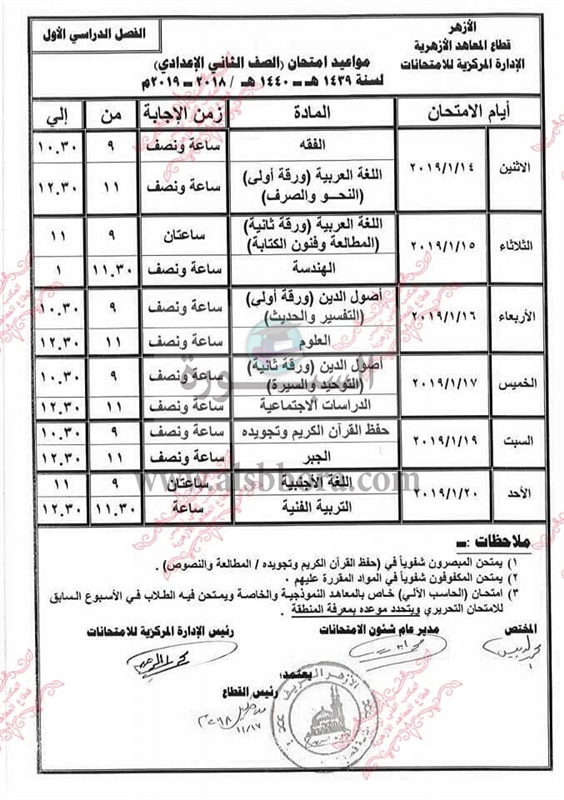 الأزهر
قطاع المعاهد الأزهرية
الإدارة المركزية للامتحانات
الفصل الدراسي الأول
مواعيد امتحان (الصف الثاني الإعدادي)
لسنة ١٤٣٩ هـ ــ ١٤٤٠ هـ / ٢٠١٨ ــ ٢٠١٩م
أيام الامتحان المادة زمن الإجابة من إلي
الاثنين ٢٠١٩/١/١٤ الفقه ساعة ونصف ٩ ١٠.٣٠
اللغة العربية (ورقة أولى) (النحو والصرف) ساعة ونصف ١١ ١٢.٣٠
الثلاثاء ٢٠١٩/١/١٥ اللغة العربية (ورقة ثانية) (المطالعة وفنون الكتابة) ساعتان ٩ ١١
الهندسة ساعة ونصف ١١.٣٠ ١
الأربعاء ٢٠١٩/١/١٦ أصول الدين (ورقة أولى) (التفسير والحديث) ساعة ونصف ٩ ١٠.٣٠
العلوم ساعة ونصف ١١ ١٢.٣٠
الخميس ٢٠١٩/١/١٧ أصول الدين (ورقة ثانية) (التوحيد والسيرة) ساعة ونصف ٩ ١٠.٣٠
الدراسات الاجتماعية ساعة ونصف ١١ ١٢.٣٠
السبت ٢٠١٩/١/١٩ حفظ القرآن الكريم وتجويده ساعة ونصف ٩ ١٠.٣٠
الجبر ساعة ونصف ١١ ١٢.٣٠
الأحد ٢٠١٩/١/٢٠ اللغة الأجنبية ساعتان ٩ ١١
التربية الفنية ساعة ١١.٣٠ ١٢.٣٠
السبورة
www.alsbbora.com
ملاحظات :ــ
١) يمتحن المبصرون شفوياً في (حفظ القرآن الكريم وتجويده / المطالعة والنصوص) .
٢) يمتحن المكفوفون شفوياً في المواد المقررة عليهم .
٣) امتحان (الحاسب الآلي) خاص بالمعاهد النموذجية والخاصة ويمتحن فيه الطلاب في الأسبوع السابق
للامتحان التحريري ويتحدد موعده بمعرفة المنطقة .
المختص مدير عام شئون الامتحانات رئيس الإدارة المركزية للامتحانات
يعتمد؛
رئيس القطاع
الأزهر الشريف